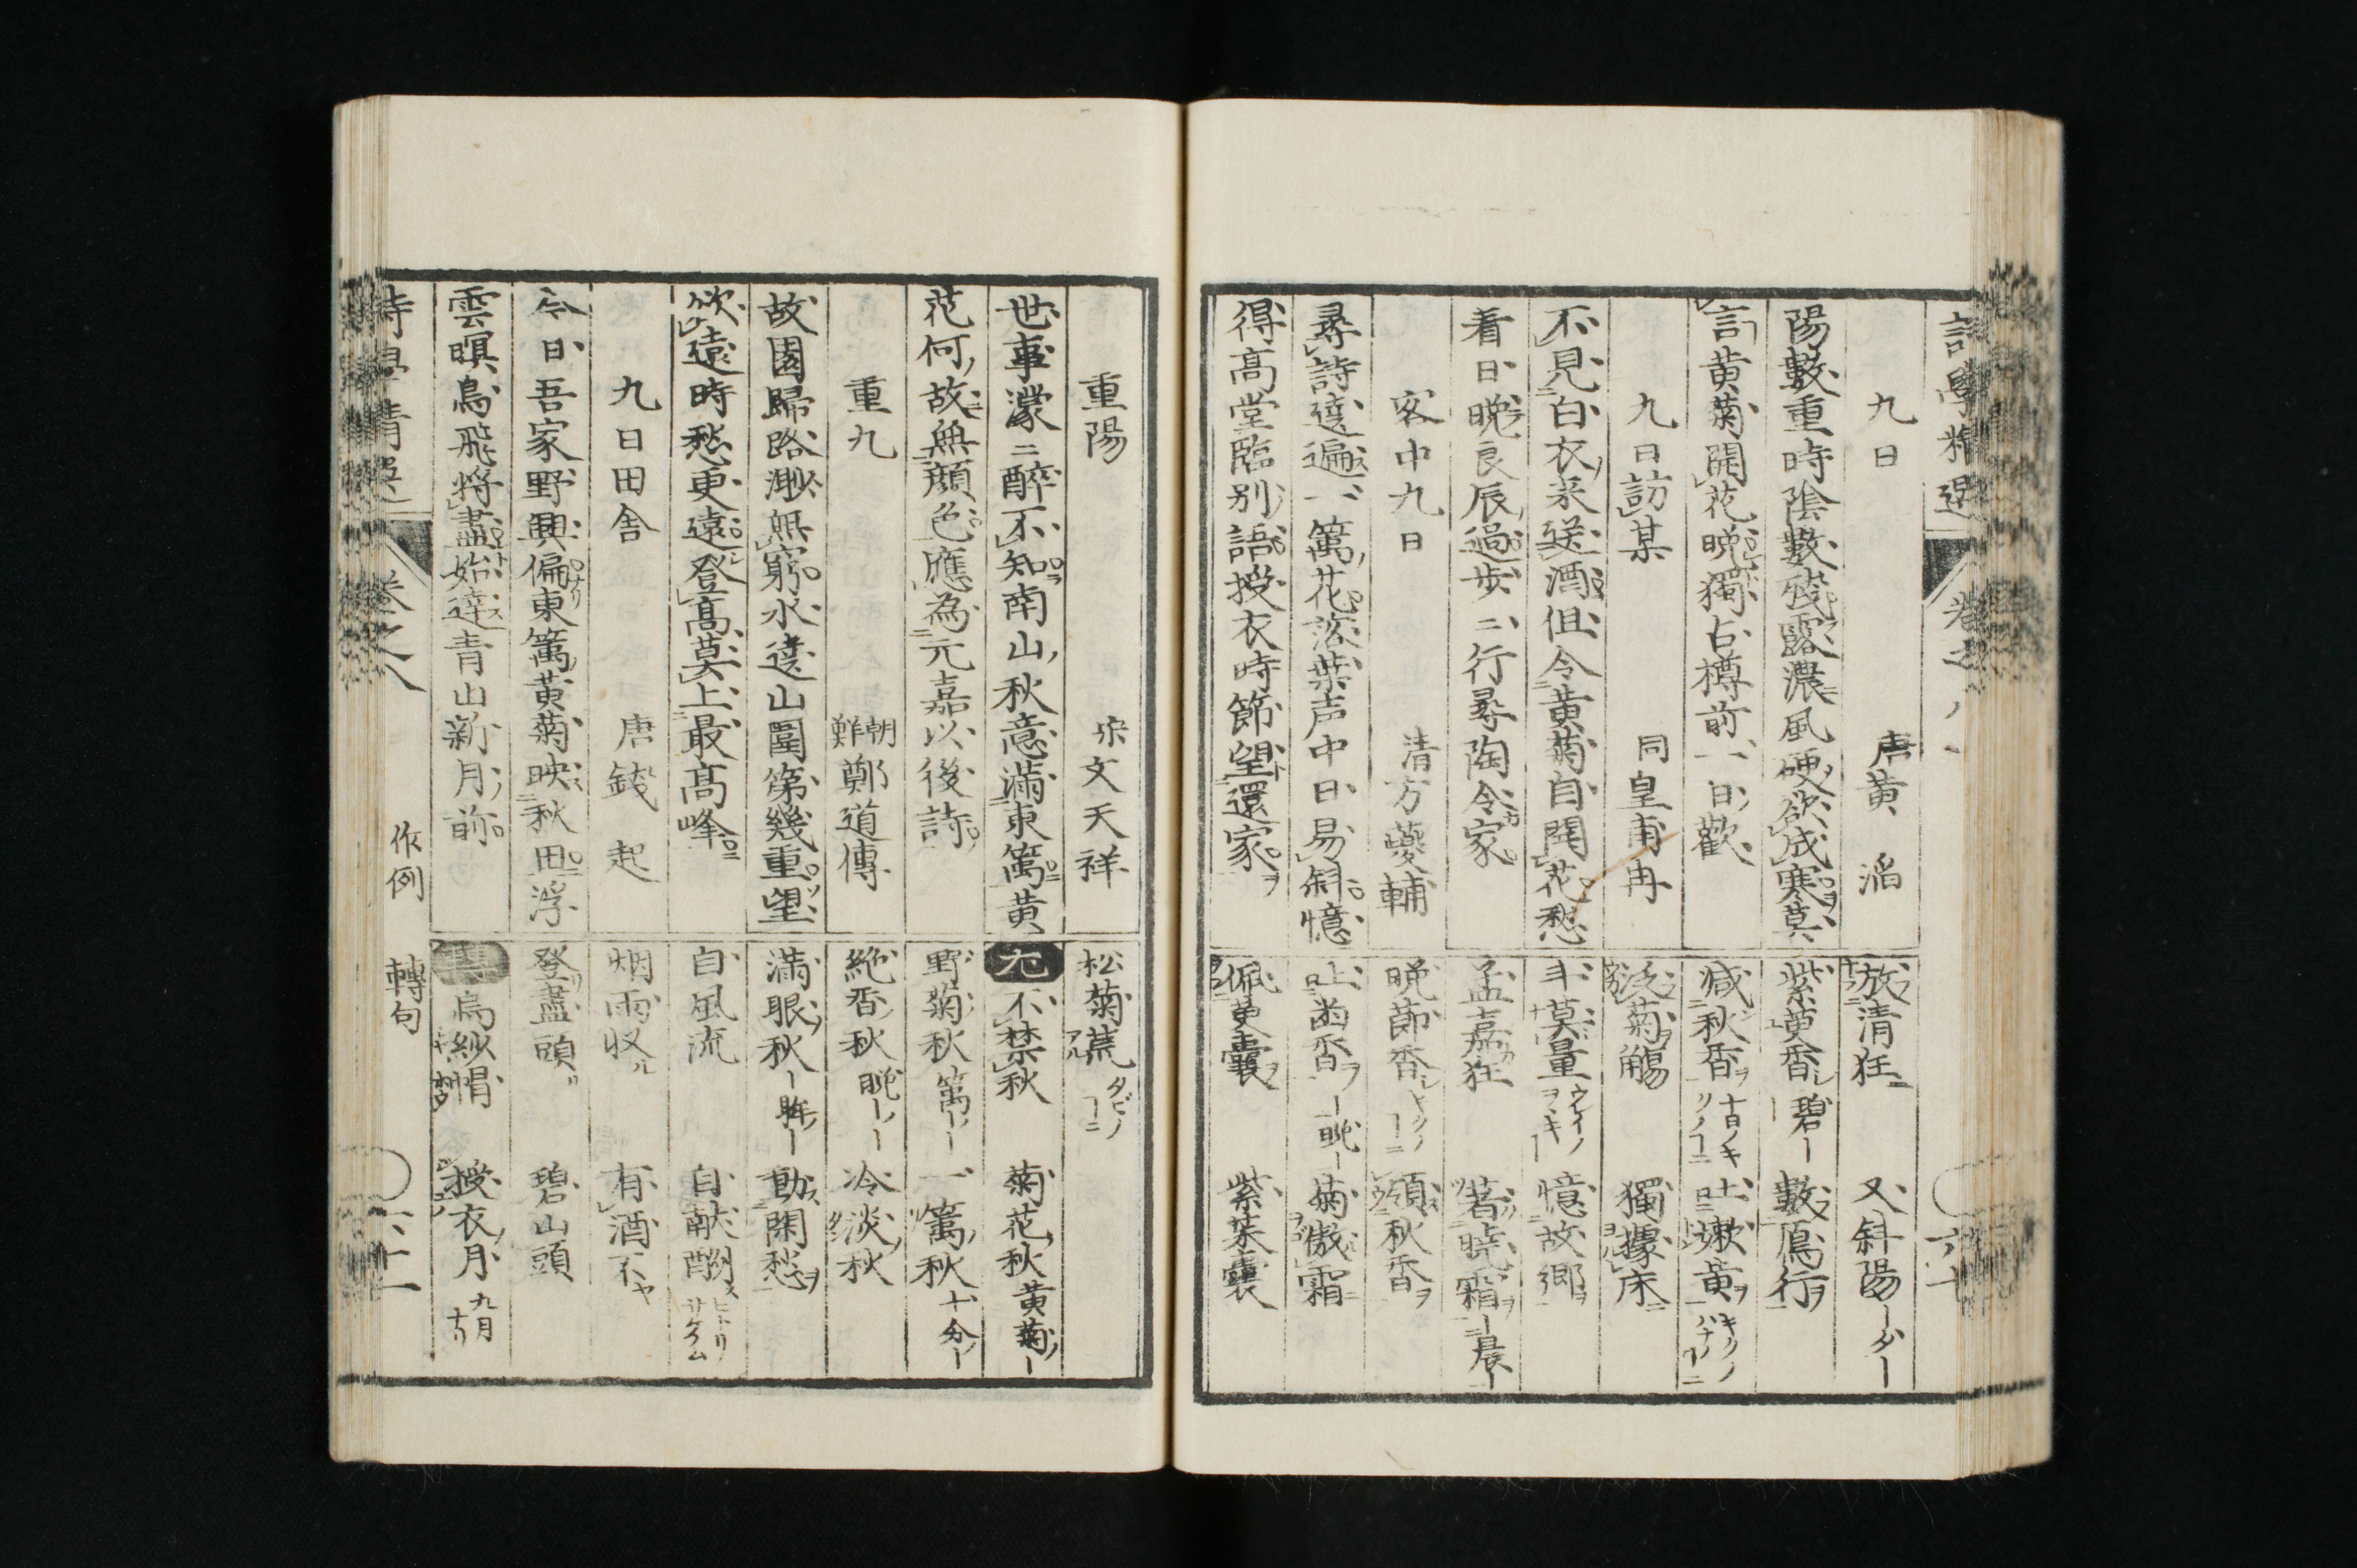 詩學精選 卷之八 六十
九日 唐黄滔
陽數重時陰數殘露濃風硬欲成寒莫
言黄菊開花晩獨占樽前一日歡
九日訪某 同皇甫冉
不見白衣来送酒但令黄菊自開花愁
看日晩良辰過步二行尋陶令家
客中九日 清方夔輔
尋詩遶遍一籬花落葉声中日易斜憶
得高堂臨别語授衣時節望還家
放清狂 又斜陽ー夕ー
紫萸香 碧ー 數鴈行
减秋香 吐嫩黄
泛菊觴 獨據床
莫量 憶故郷
孟嘉狂 着曉霜ー晨ー
晩節香 傾秋香
吐菊香ー晩ー 菊傲霜
佩萸囊 紫茱囊
重陽 宋文天祥
世事濛二醉不知南山秋意滿東籬黄
花何故無顔色應為元嘉以後詩
重九 朝鮮鄭道傳
故園歸路渺無窮水遶山圍第幾重望
欲遠時愁更遠登髙莫上最髙峰
九日田舎 唐錢起
今日吾家野興偏東籬黄菊映秋田浮
雲暝鳥飛將盡始達青山新月前
松菊荒
尤 不禁秋 菊花秋 黄菊ー
野菊秋 籬ー 一籬秋 十分ー
絶香秋 晩ー 冷淡秋
滿眼秋ー眸ー 動閑愁
自風流 自献酬
烟雨收 有酒不
登盡頭 碧山頭
烏紗帽 授衣月 九月
詩學精選 卷之八 作例 轉句 六十一